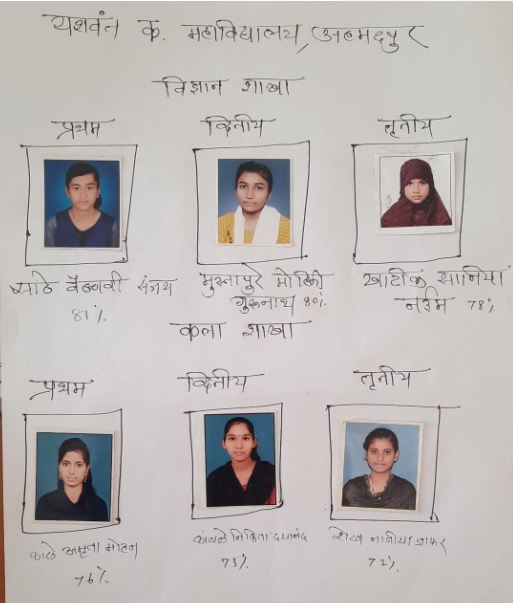 यशवंत क. महाविद्यालय, अहमदपुर
विज्ञान शाखा
प्रथम द्वितीय तृतीय
साठे वैष्णवी संजय
81%
मुस्तापुरे मोहिनी
गुरुनाथ 80%
खाटीक सानिया
नईम 78%
कला शाखा
प्रथम द्वितीय तृतीय
काळे अमृता मोहन
76%
कांबळे निकिता दयानंद
73%
शेख नाजीया जाफर
72%